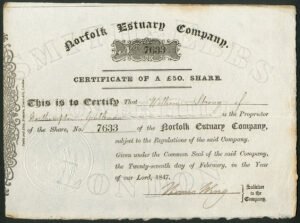 Norfolk Estuary Company.
7633
CERTIFICATE OF A £50. SHARE.
This is to Certify That William Strong of
Gentleman is the Proprietor
of the Share, No. 7633 of the Norfolk Estuary Company,
subject to the Regulations of the said Company.
Given under the Common Seal of the said Company,
the Twenty-seventh day of February, in the Year
of our Lord, 1847.
Thomas Wing
Solicitor
to the
Company.